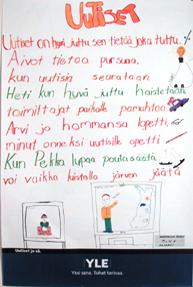 UUTISET
Uutiset on hyvä juttu, sen tietää joka tuttu.
Aivot tietoa pursuaa,
kun uutisia seurataan.
Heti kun hyvä juttu haistetaan
toimittajat paikalle parahtaa.
Arvi jo hommansa lopetti,
minut onneksi uutisille opetti.
Kun Pekka lupaa poutasäästä
voi vaikka hiihdellä järven jäätä
Uutiset jo v8.
YLE
Yksi sana. Tuhat tarinaa.